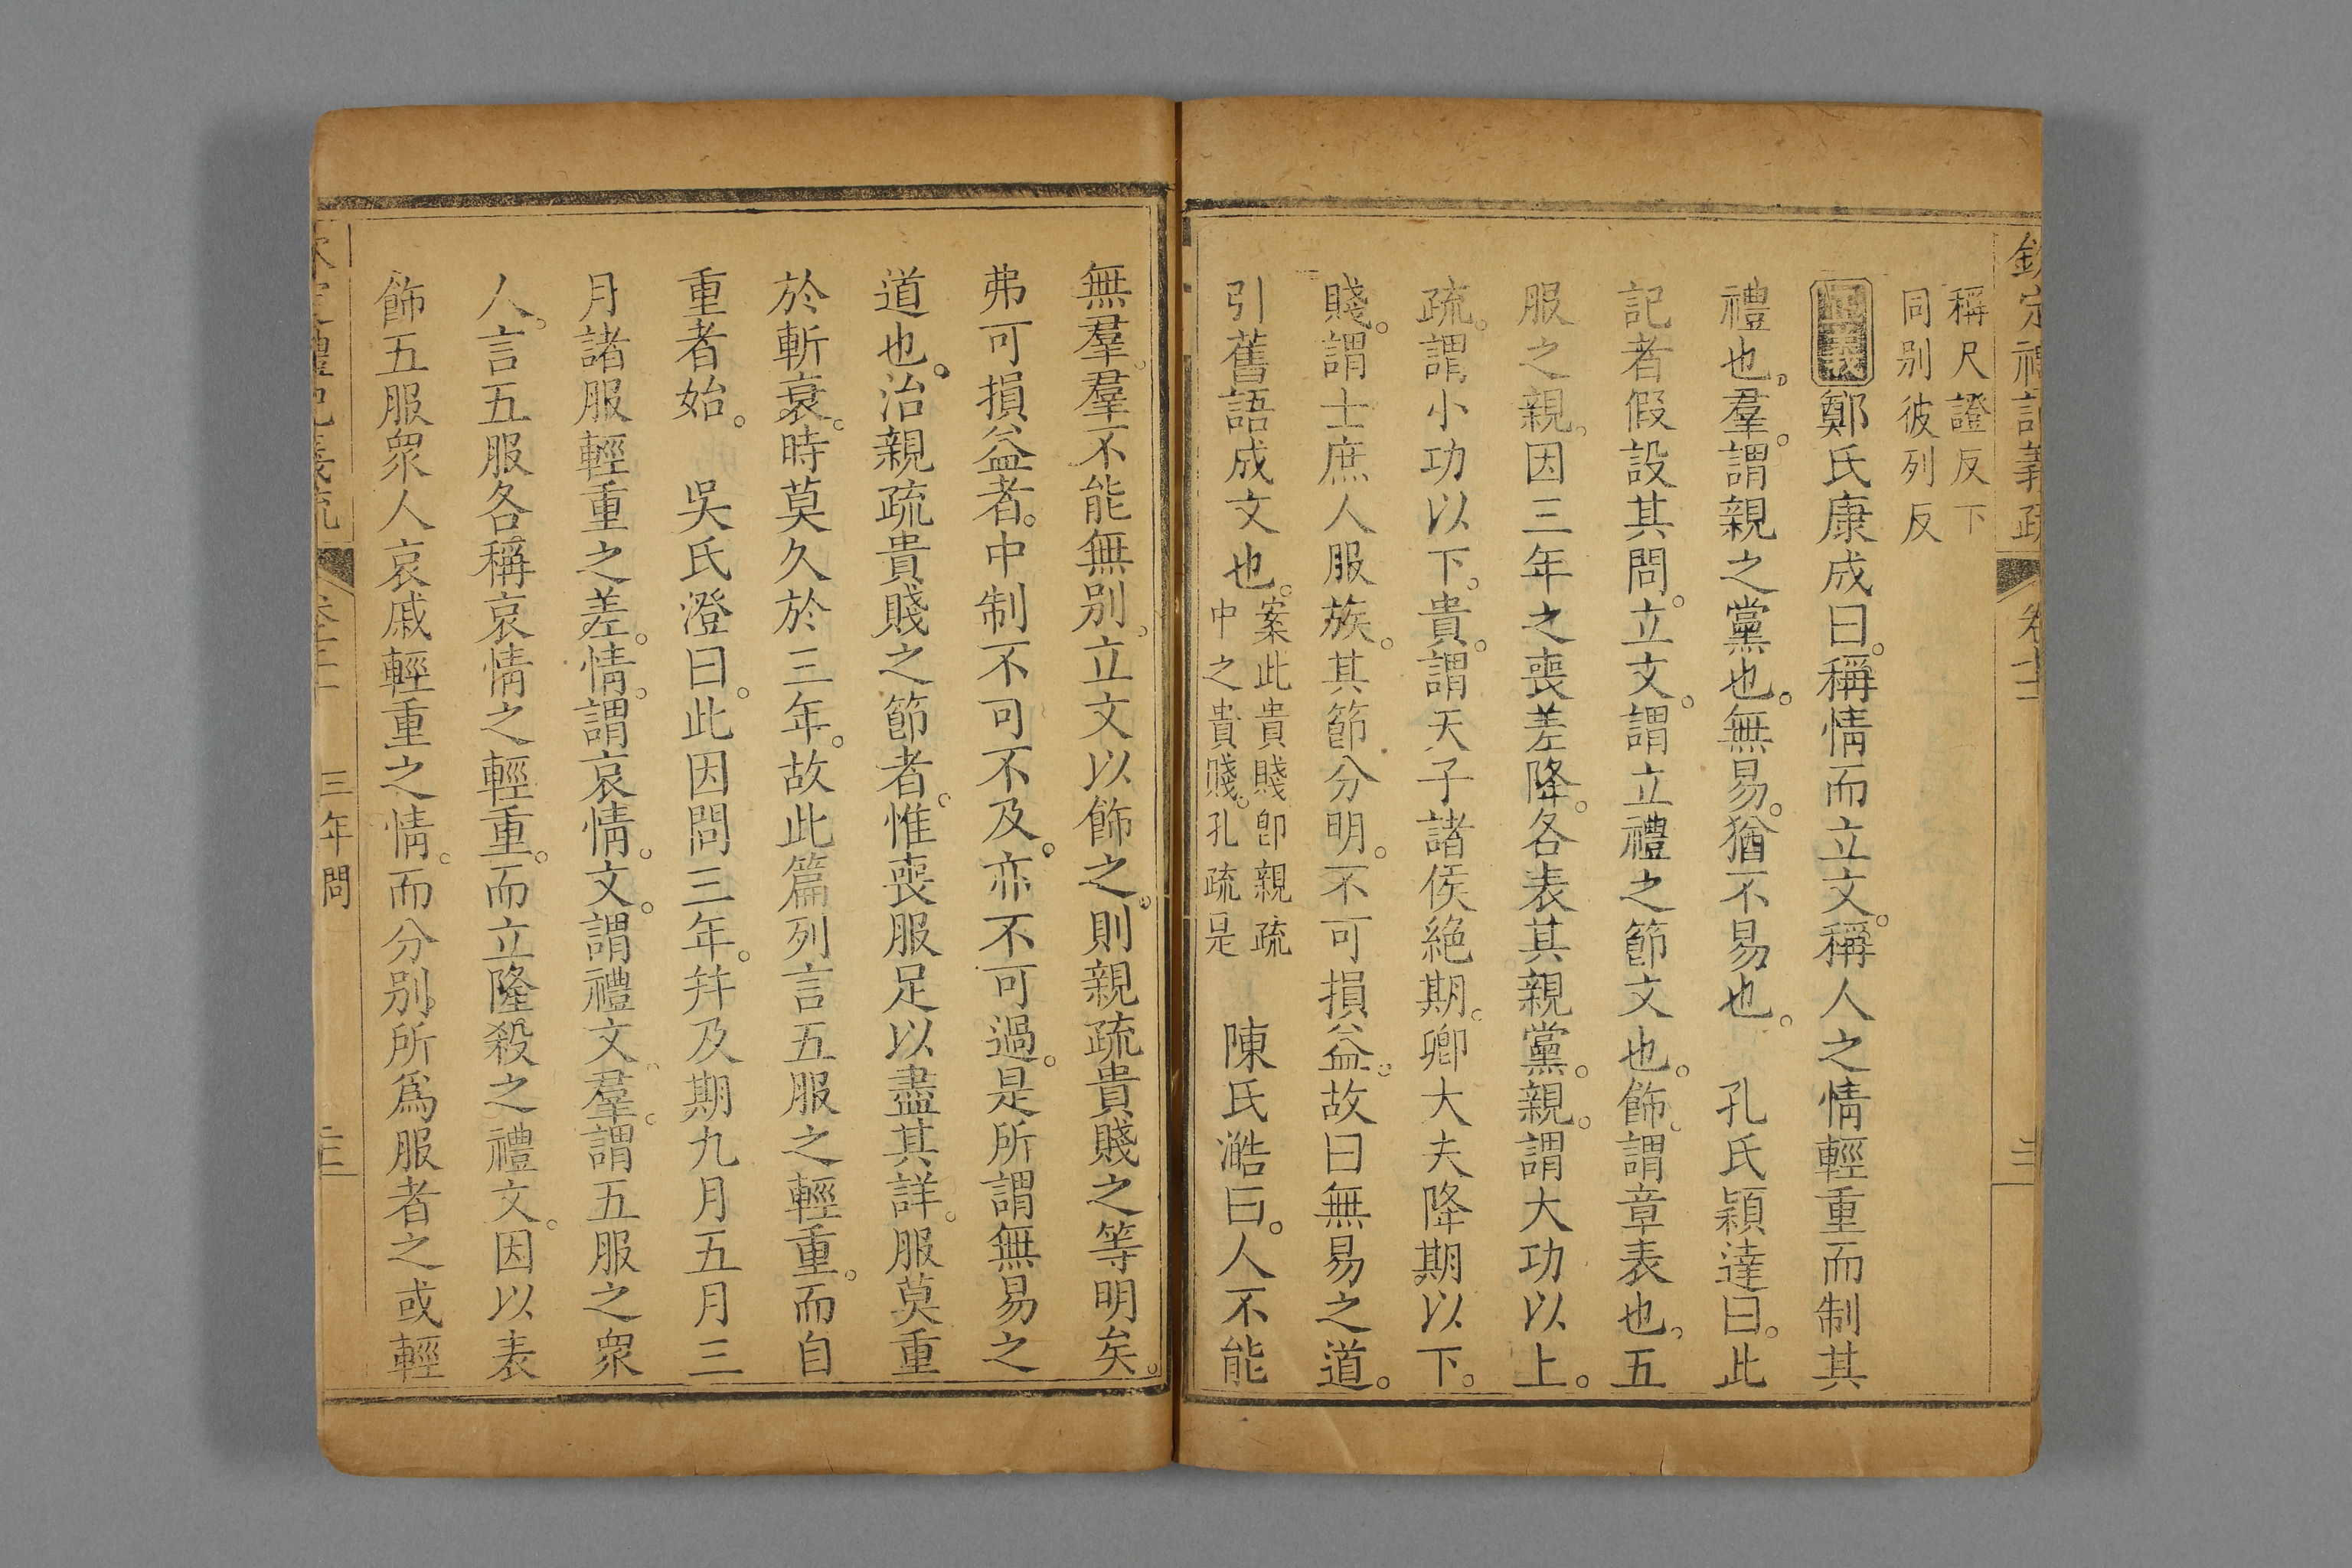 欽定禮記義疏 卷七十二 三
稱尺證反下
同别彼列反
正義鄭氏康成曰。稱情而立文。稱人之情輕重而制其
禮也。羣。謂親之黨也。無易。猶不易也。 孔氏穎達曰。此
記者假設其問。立文。謂立禮之節文也。飾。謂章表也。五
服之親。因三年之喪差降。各表其親黨。親。謂大功以上。
疏。謂小功以下。貴。謂天子諸侯絶期。卿大夫降期以下。
賤。謂士庶人服族。其節分明。不可損益。故曰無易之道。
引舊語成文也。案此貴賤卽親疏
中之貴賤。孔疏是
陳氏澔曰。人不能
無羣。羣不能無别。立文以飾之。則親疏貴賤之等明矣。
弗可損益者。中制不可不及。亦不可過。是所謂無易之
道也。治親疏貴賤之節者。惟喪服足以盡其詳。服莫重
於斬衰。時莫久於三年。故此篇列言五服之輕重。而自
重者始。 吳氏澄曰。此因問三年。幷及期九月五月三
月諸服輕重之差。情。謂哀情。文。謂禮文。羣。謂五服之衆
人。言五服各稱哀情之輕重。而立隆殺之禮文。因以表
飾五服衆人哀戚輕重之情。而分别。所爲服者之或輕
三年問